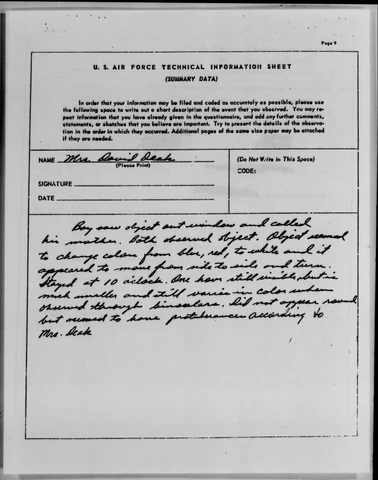 Page 9
U. S. AIR FORCE TECHNICAL INFORMATION SHEET
(SUMMARY DATA)
In order that your information may be filed and coded as accurately as possible, please use
the following space to write out a short description of the event that you observed. You may re-
peat information that you have already given in the questionnaire, and add any further comments,
statements, or sketches that you believe are important. Try to present the details of the observa-
tion in the order in which they occurred. Additional pages of the same size paper may be attached
if they are needed.
NAME Mrs. David Deak
(Please Print)
(Do Not Write in This Space)
CODE:
SIGNATURE
DATE
Boy saw object out window and called
his mother. Both observed object. Object seemed
to change colors from blue, red, to white and it
appeared to move from side to side and turn.
Stayed at 10 o'clock. One hour still visible, but is
much smaller and still varies in color when
observed through binoculars. Did not appear round
but seemed to have protuberances according to
Mrs. Deak